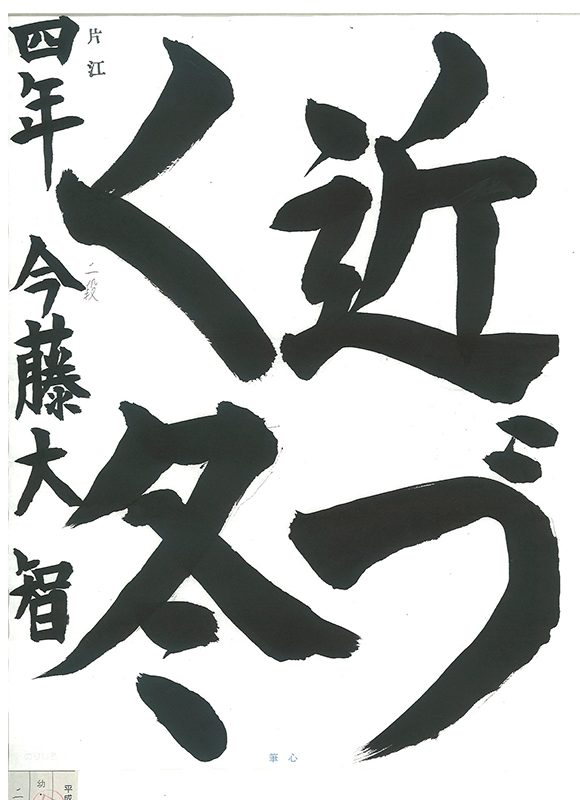 近づ
く冬
片江
四年 今藤大智
二段
心筆
平成
幼
二